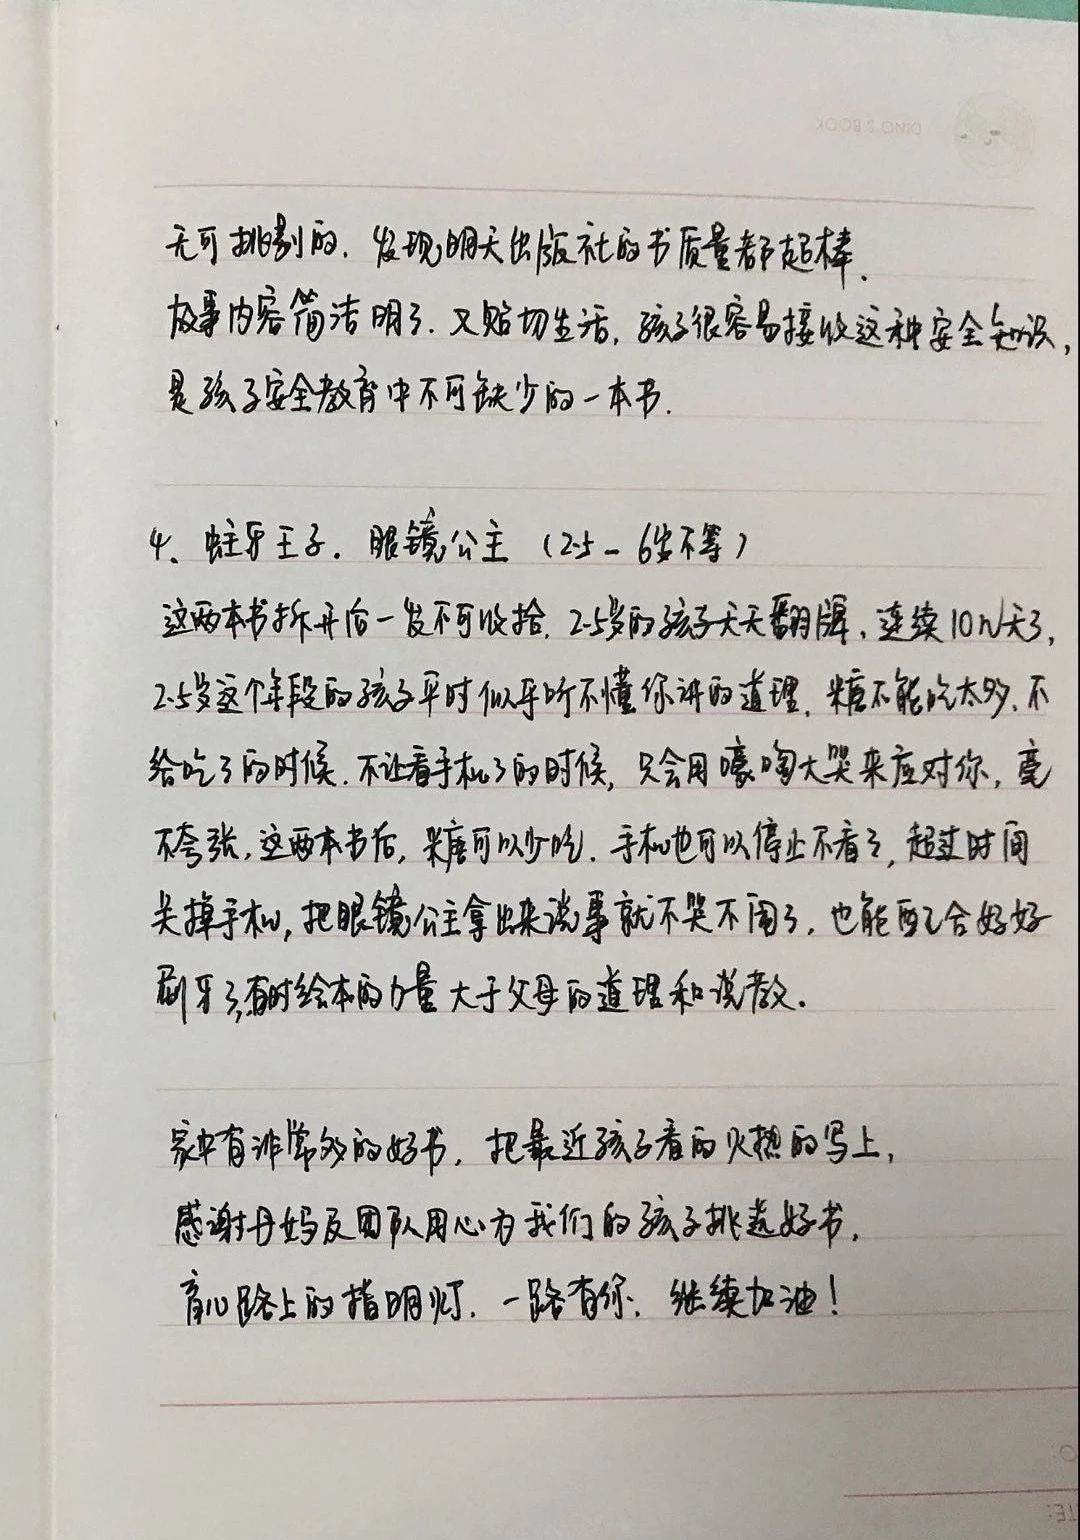 DINO'S BOOK
无可挑剔的. 发现明天出版社的书质量都超棒.
故事内容简洁明了. 又贴切生活, 孩子很容易接收这种安全知识,
是孩子安全教育中不可缺少的一本书.
4、蛀牙王子. 眼镜公主 (2.5-6岁不等)
这两本书拆开后一发不可收拾. 2.5岁的孩子天天翻牌, 连续10几天了,
2.5岁这个年段的孩子平时似乎听不懂你讲的道理, 糖不能吃太多. 不
给吃了的时候. 不让看手机了的时候, 只会用嚎啕大哭来应对你, 毫
不夸张, 这两本书后, 糖可以少吃. 手机也可以停止不看了, 超过时间
关掉手机, 把眼镜公主拿出来说事就不哭不闹了. 也能配合好好
刷牙了, 有时绘本的力量大于父母的道理和说教.
家中有非常多的好书, 把最近孩子看的火热的写上,
感谢丹妈及团队用心为我们的孩子挑选好书,
育儿路上的指明灯. 一路有你. 继续加油!